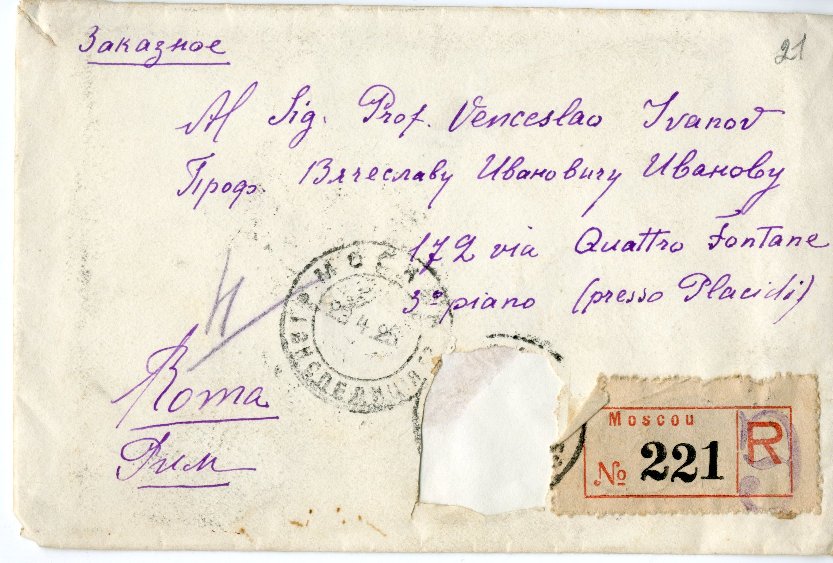 Заказное
21
Al Sig. Prof. Venceslao Ivanov
Проф. Вячеславу Ивановичу Иванову
172 via Quattro Fontane
3º piano (presso Placidi)
МОСКВА
ЭКСПЕДИЦИЯ
4.25
Roma
Рим
Moscou
№ 221 R